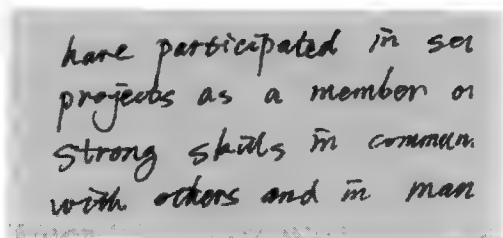 have participated in sev
projects as a member or
strong skills in commun
with others and in man